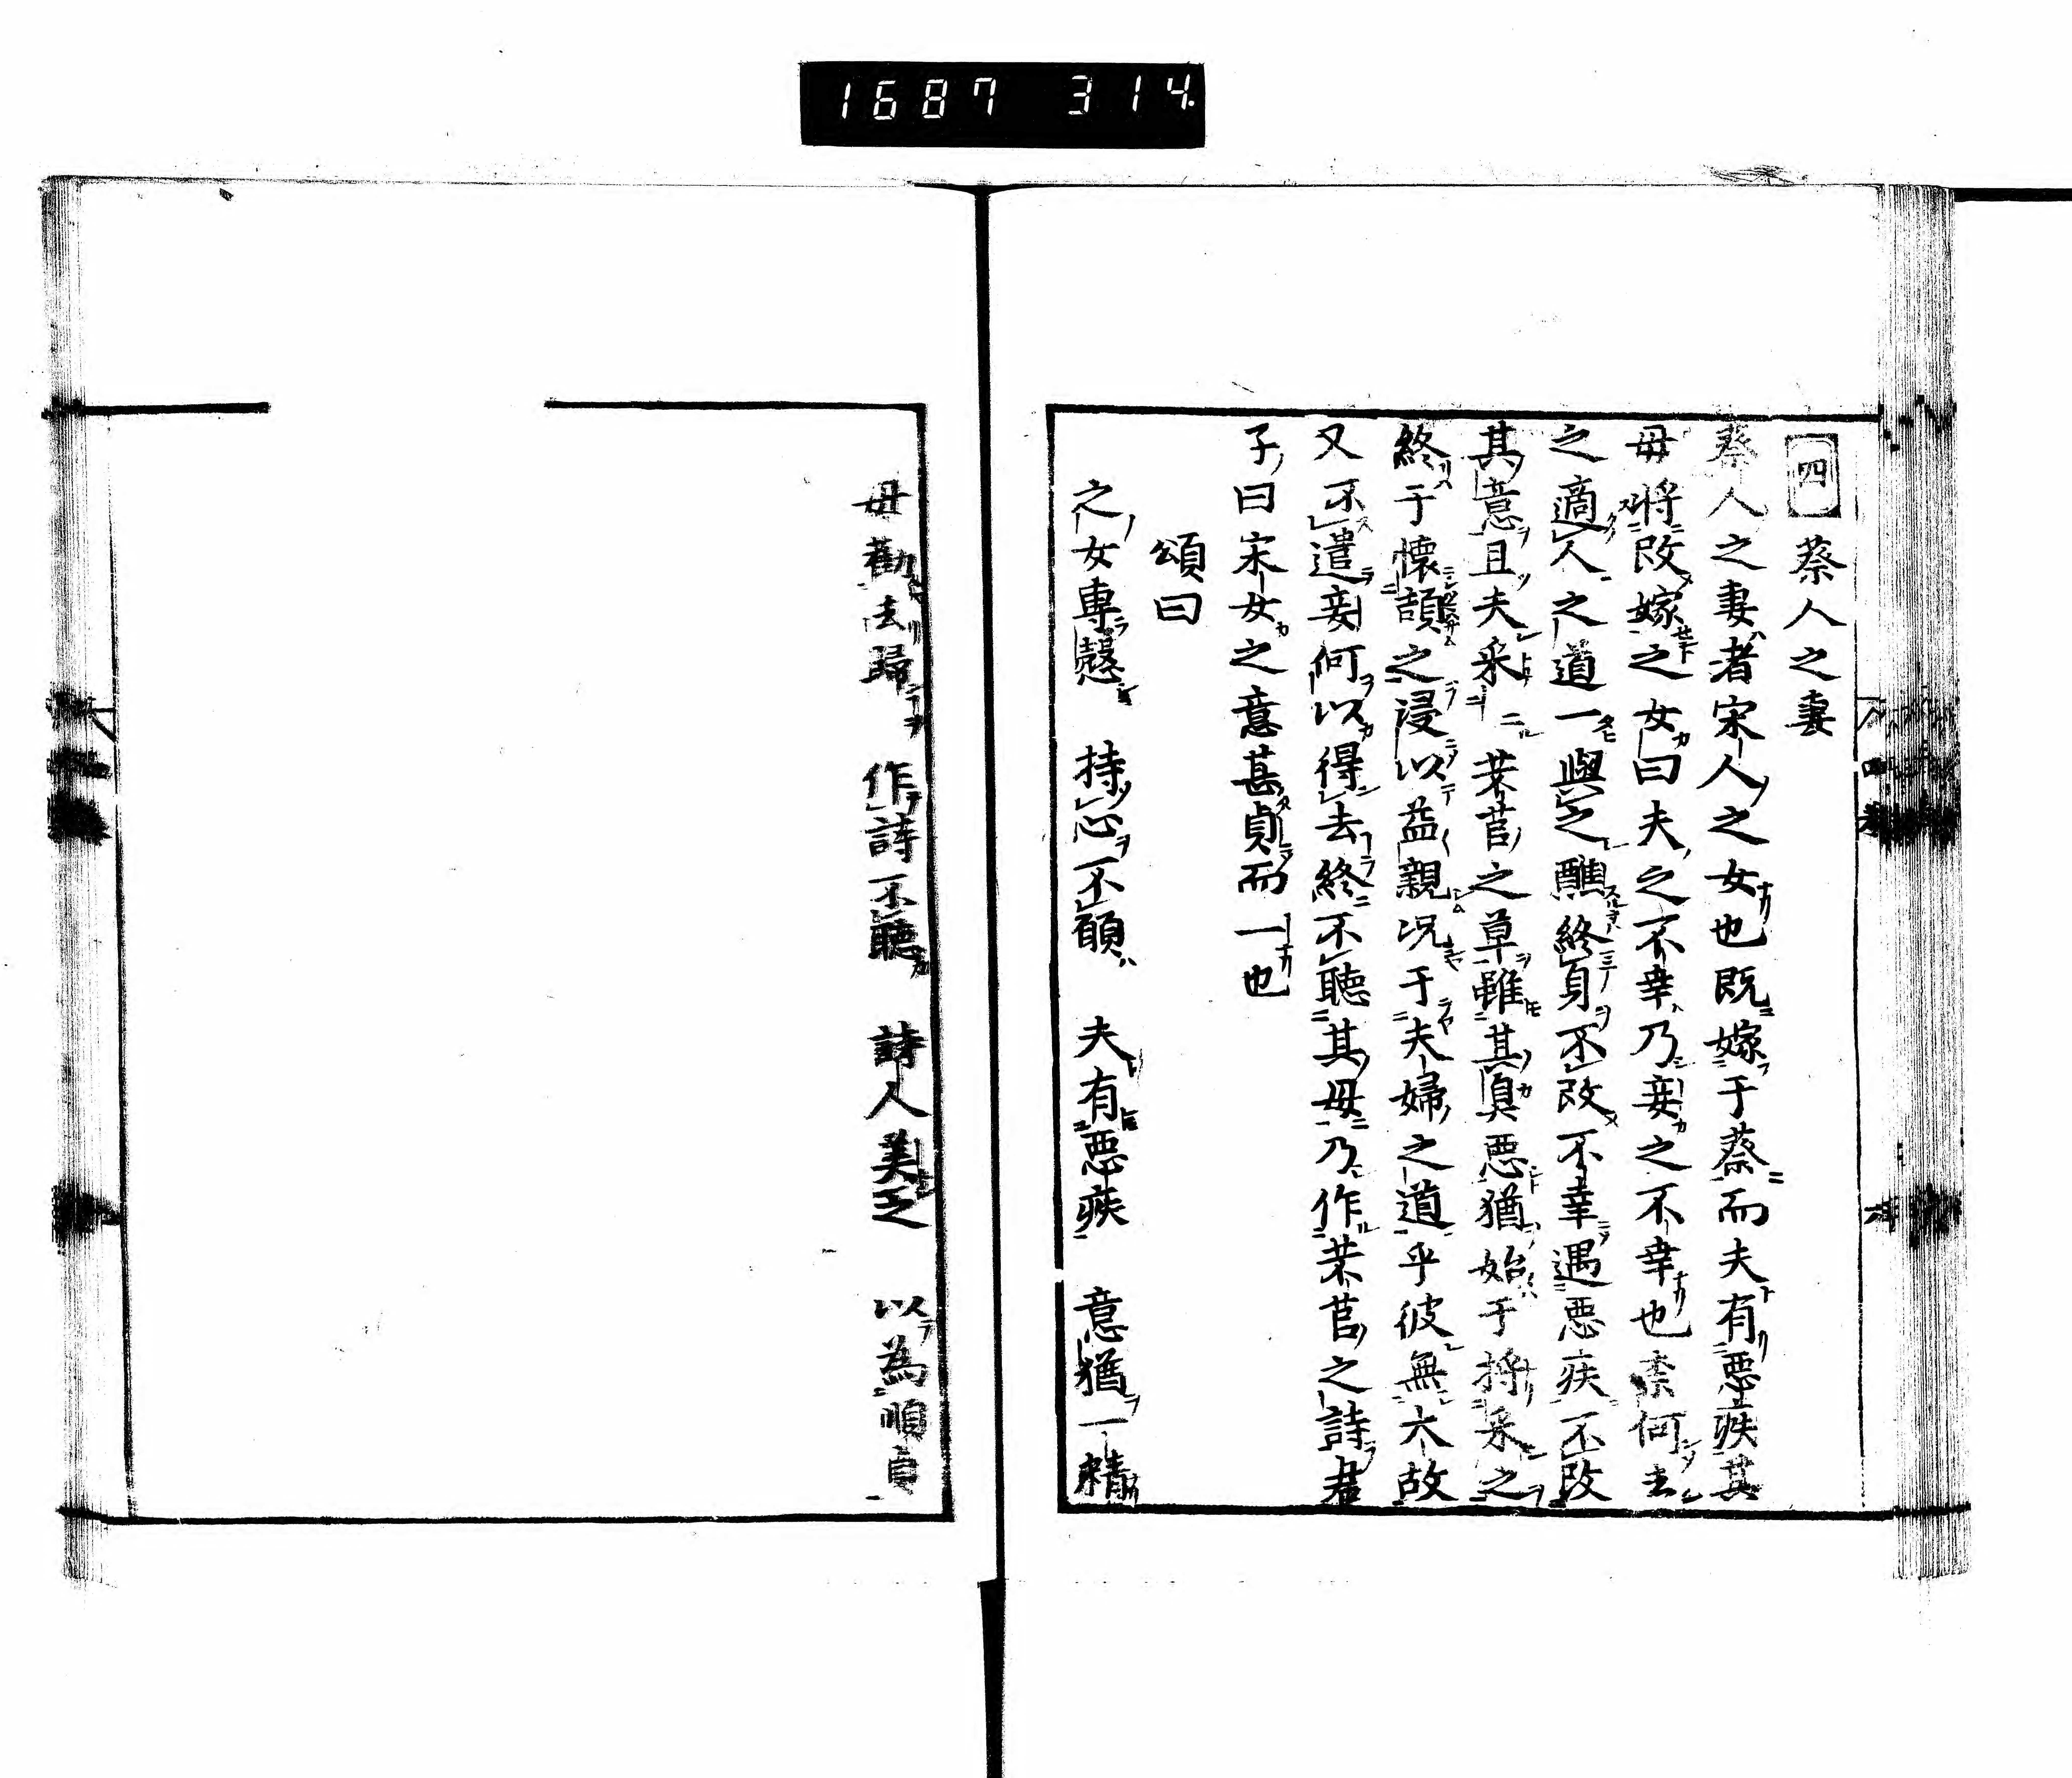 1687 314.
四 蔡人之妻
蔡人之妻者宋人之女也既嫁于蔡而夫有惡疾其
母將改嫁之女曰夫之不幸乃妾之不幸也柰何去
之適人之道一與之醮終身不改不幸遇惡疾不改
其意且夫采采芣苢之草雖其臭惡猶始于捋采之
終于懷頡之浸以益親况于夫婦之道乎彼無大故
又不遣妾何以得去終不聽其母乃作芣苢之詩君
子曰宋女之意甚貞而一也
頌曰
之女專愨 持心不願 夫有惡疾 意猶一精
母勸去歸 作詩不聽 詩人美之 以為順貞